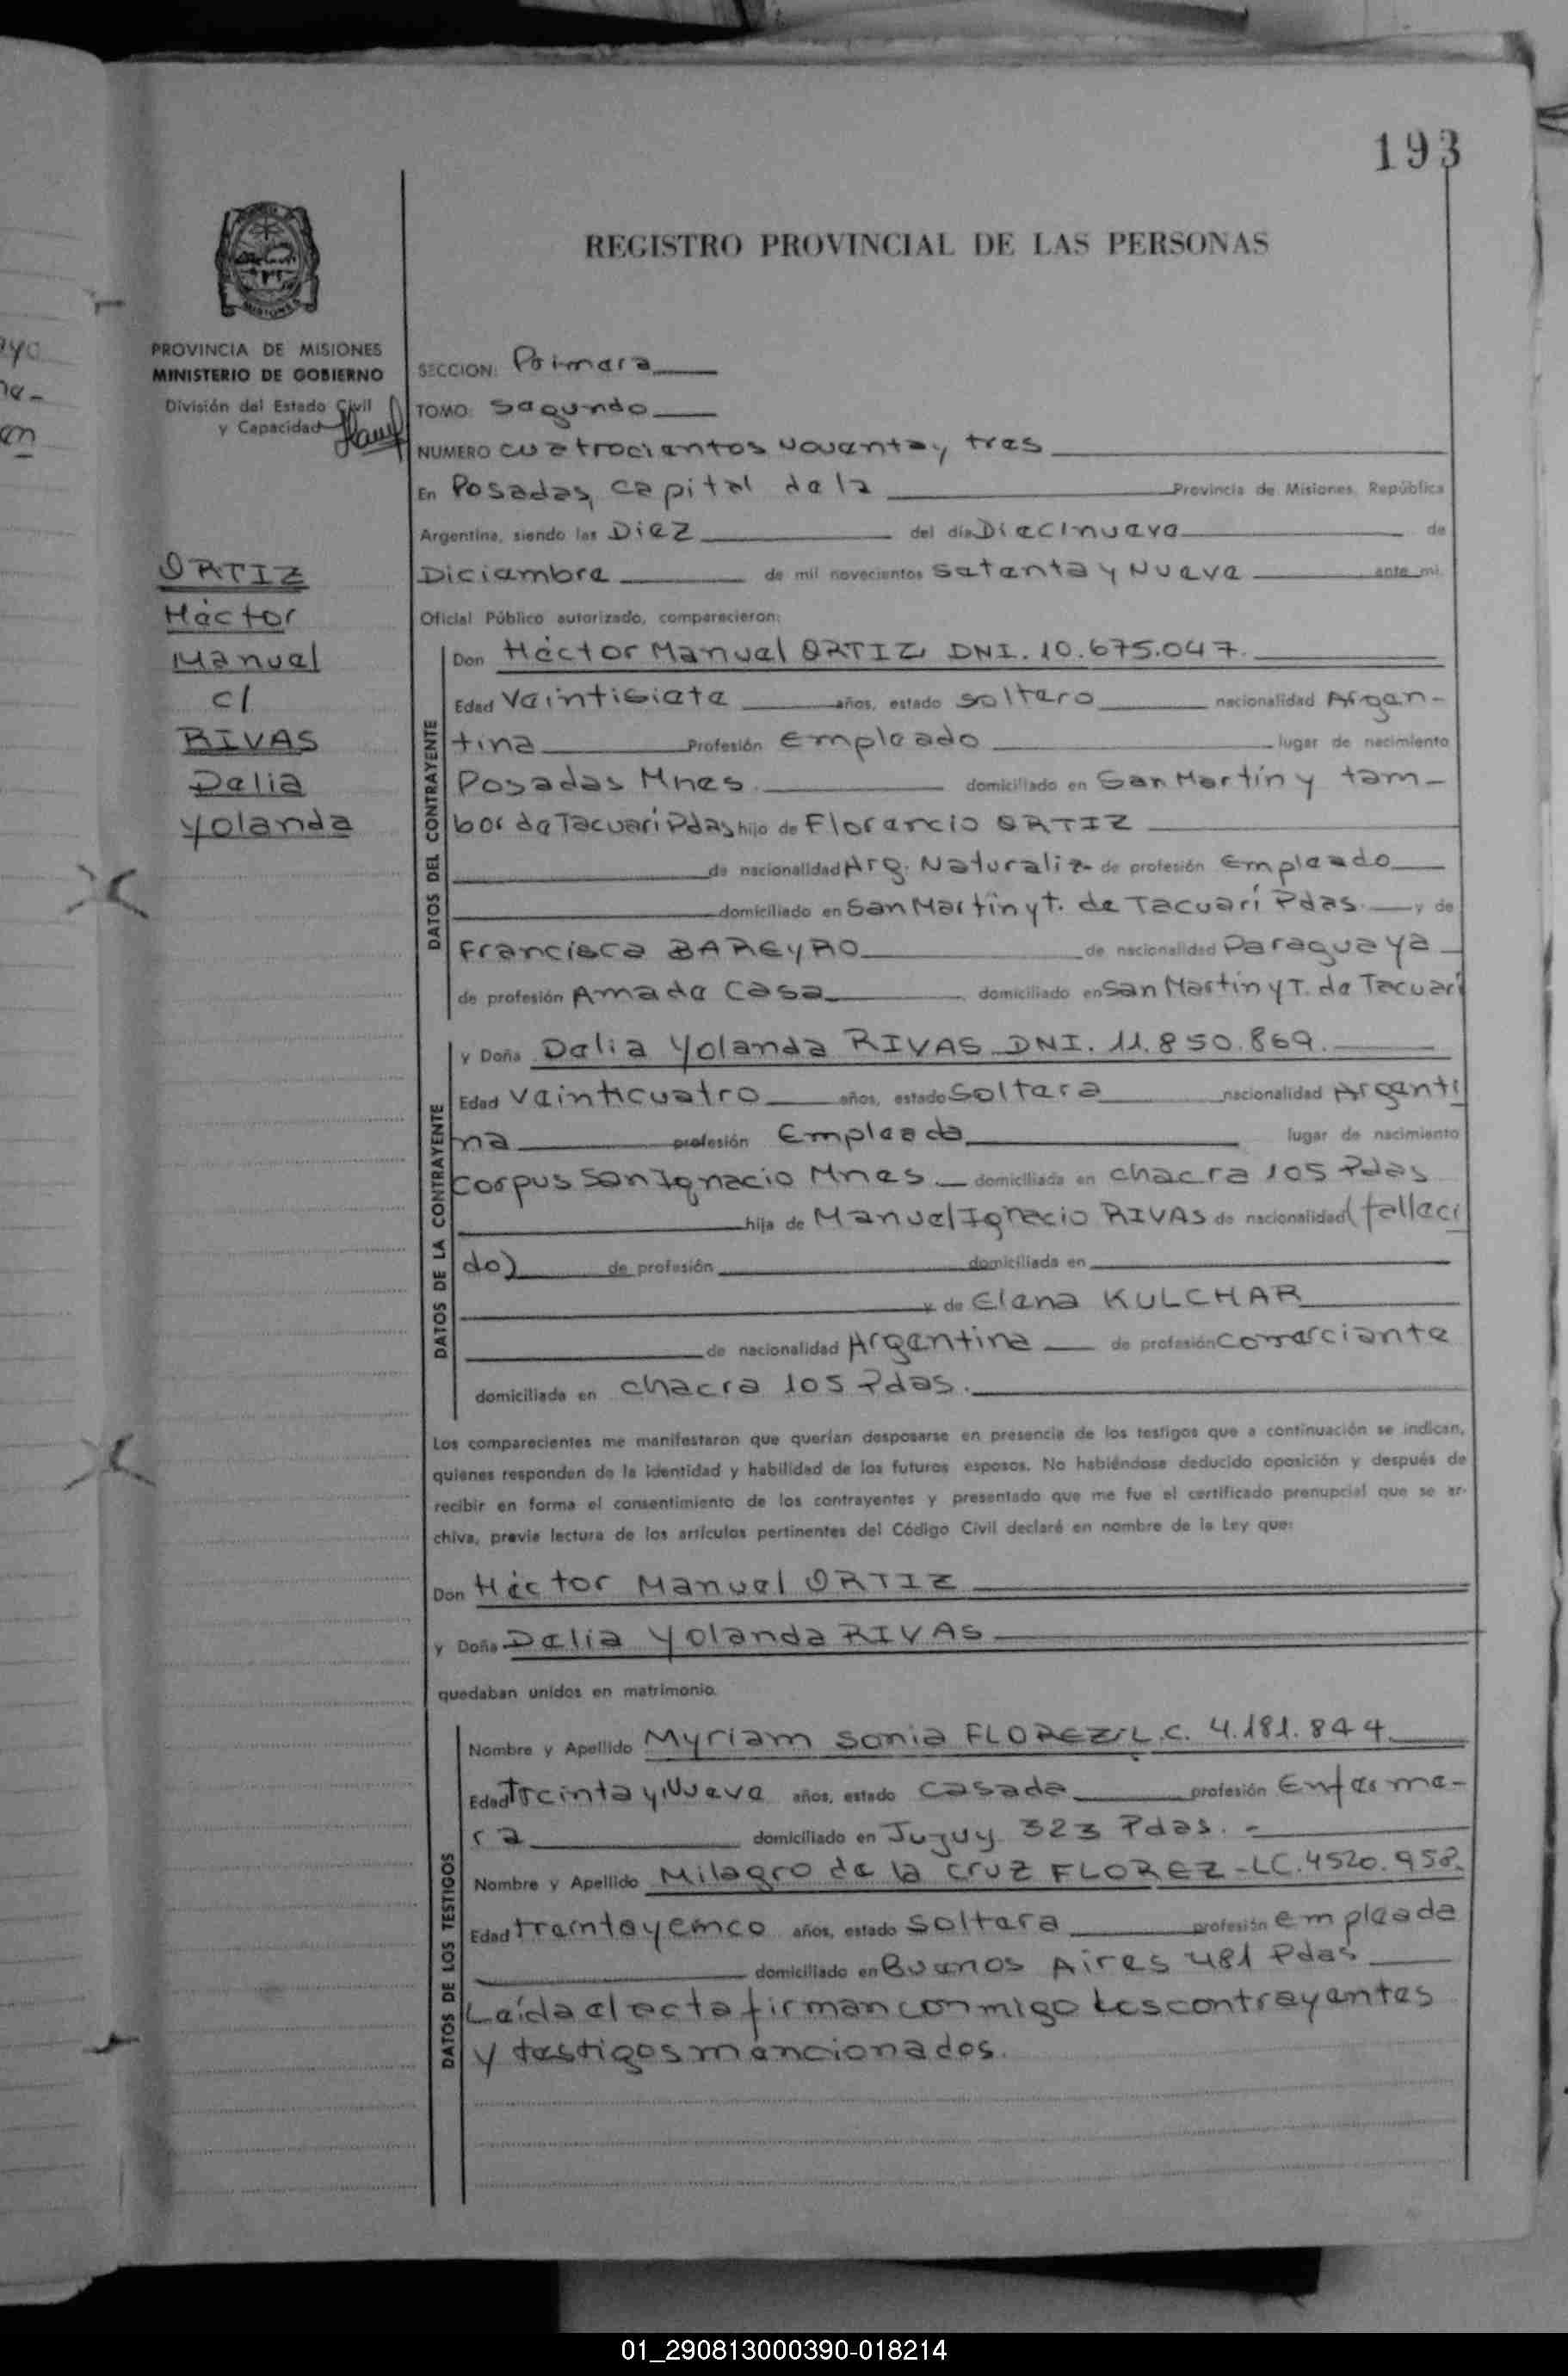 193
REGISTRO PROVINCIAL DE LAS PERSONAS
MISIONES
PROVINCIA DE MISIONES
MINISTERIO DE GOBIERNO
División del Estado Civil
y Capacidad
ORTIZ
Héctor
Manuel
c/
RIVAS
Delia
Yolanda
SECCION: Primera
TOMO: Segundo
NUMERO cuatrocientos noventa y tres
En Posadas, capital de la Provincia de Misiones, República
Argentina, siendo las Diez del día Diecinueve de
Diciembre de mil novecientos setenta y Nueve ante mí.
Oficial Público autorizado, comparecieron:
DATOS DEL CONTRAYENTE
Don Héctor Manuel ORTIZ DNI. 10.675.047.
Edad Veintisiete años, estado soltero nacionalidad Argen-
tina Profesión Empleado lugar de nacimiento
Posadas Mnes. domiciliado en San Martín y tam-
bor de Tacuari Pdas hijo de Florencio ORTIZ
de nacionalidad Arg. Naturaliz. de profesión Empleado
domiciliado en San Martín y t. de Tacuarí Pdas. y de
Francisca BAREYRO de nacionalidad Paraguaya
de profesión Ama de Casa domiciliado en San Martin y T. de Tacuarí
DATOS DE LA CONTRAYENTE
y Doña Delia Yolanda RIVAS DNI. 11.850.869.
Edad Veinticuatro años, estado Soltera nacionalidad Argenti
na profesión Empleada lugar de nacimiento
Corpus San Ignacio Mnes. domiciliada en chacra 105 Pdas
hija de Manuel Ignacio RIVAS de nacionalidad (falleci
do) de profesión domiciliada en
y de Elena KULCHAR
de nacionalidad Argentina de profesión Comerciante
domiciliada en chacra 105 Pdas.
Los comparecientes me manifestaron que querían desposarse en presencia de los testigos que a continuación se indican,
quienes responden de la identidad y habilidad de los futuros esposos. No habiéndose deducido oposición y después de
recibir en forma el consentimiento de los contrayentes y presentado que me fue el certificado prenupcial que se ar-
chiva, previa lectura de los artículos pertinentes del Código Civil declaré en nombre de la Ley que:
Don Héctor Manuel ORTIZ
y Doña Delia Yolanda RIVAS
quedaban unidos en matrimonio.
DATOS DE LOS TESTIGOS
Nombre y Apellido Myriam Sonia FLOREZ L.C. 4.181.844.
Edad Treinta y Nueve años, estado casada profesión Enferme-
ra domiciliado en Jujuy 323 Pdas. -
Nombre y Apellido Milagro de la Cruz FLOREZ - LC. 4520.958.
Edad treintaycinco años, estado Soltera profesión empleada
domiciliado en Buenos Aires 481 Pdas
Leída el acta firman conmigo los contrayentes
y testigos mencionados.
01_290813000390-018214